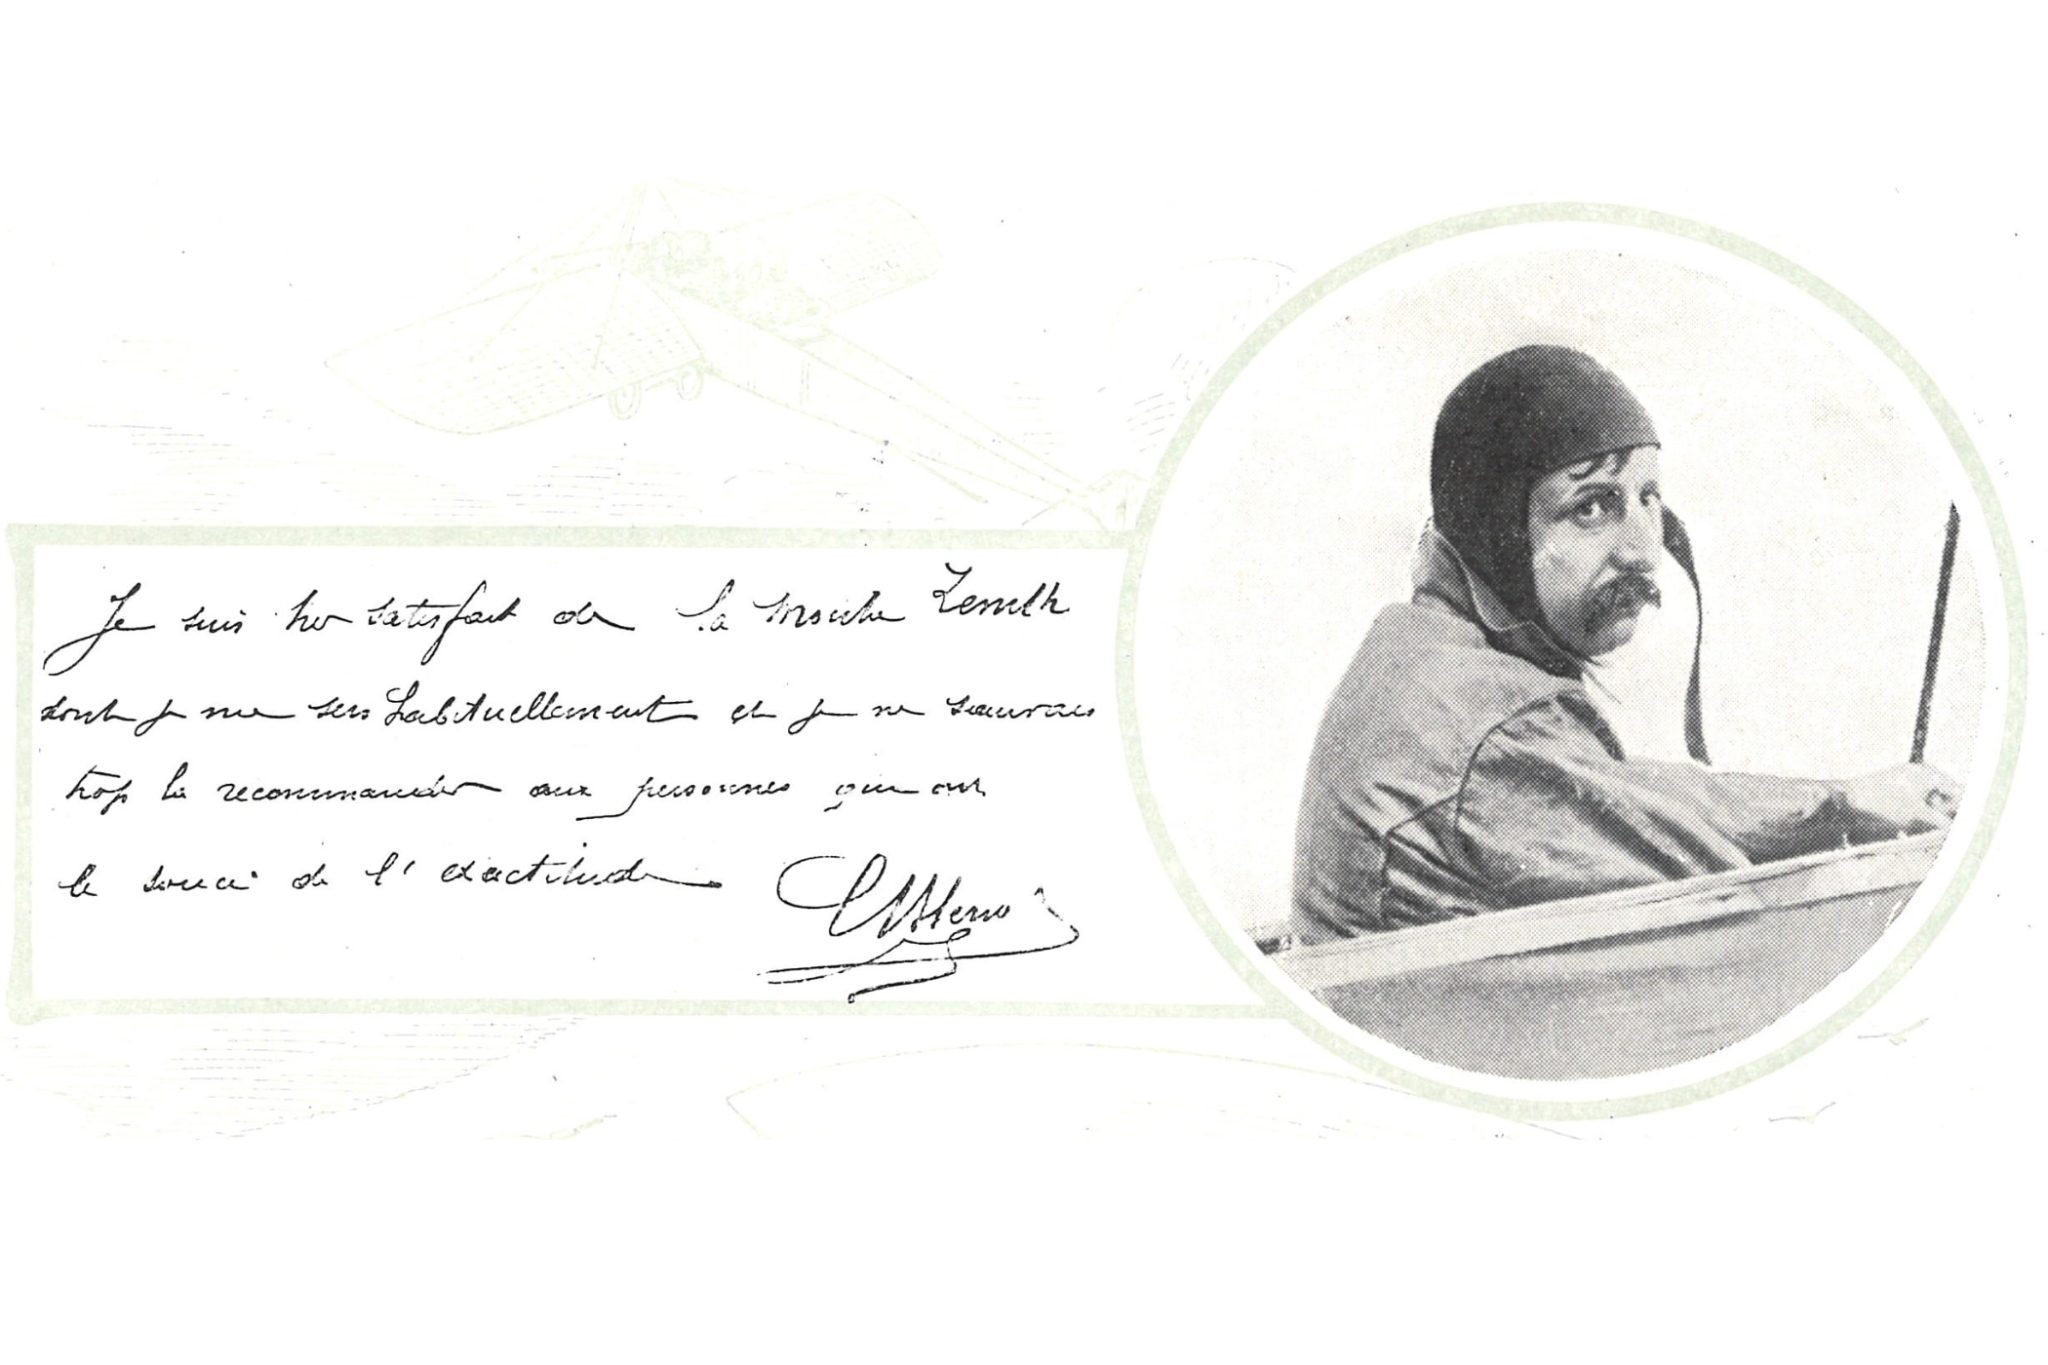 Je suis très satisfait de la montre Zenith
dont je me sers habituellement et je ne saurais
trop la recommander aux personnes qui ont
le souci de l'exactitude
L Blériot